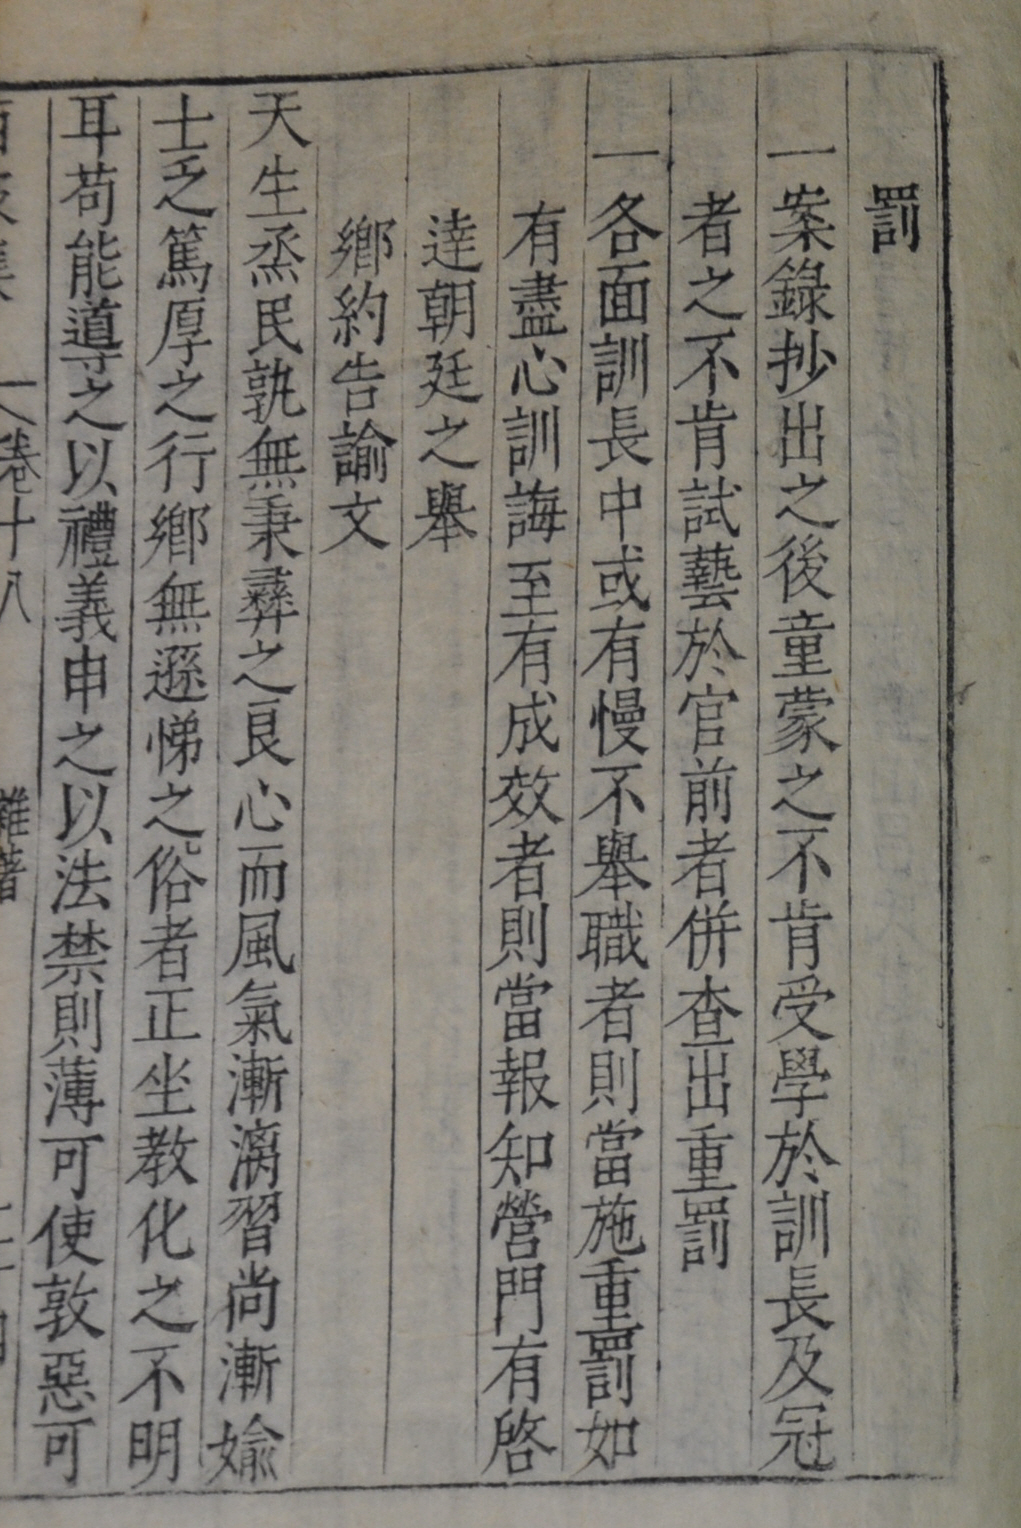 罰
一案錄抄出之後童蒙之不肯受學於訓長及冠
者之不肯試藝於官前者併查出重罰
一各面訓長中或有慢不舉職者則當施重罰如
有盡心訓誨至有成效者則當報知營門有啓
達朝廷之舉
鄉約告諭文
天生烝民孰無秉彛之良心而風氣漸漓習尚漸媮
士乏篤厚之行鄉無遜悌之俗者正坐教化之不明
耳苟能導之以禮義申之以法禁則薄可使敦惡可
卷十八 雜著